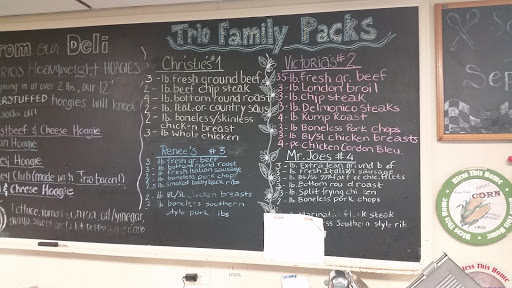 From our Deli
Heavyweight HOAGIES
at over 2 lbs., our 12"
OVERSTUFFED hoagies will knock
Roastbeef & Cheese Hoagie
Hoagie
Hoagie
Club (made with Trio bacon!)
& Cheese Hoagie
lettuce, tomato, onion, oil/vinegar,
Trio Family Packs
Christie's #1
3 - lb. fresh ground beef
2 - lb. beef chip steak
4 - lb. bottom round roast
2 - lb. Ital. or country sausage
2 - lb. boneless/skinless
chicken breast
3 - lb. whole chicken
Renee's #3
3 - lb. fresh gr. beef
lb. bottom round roast
lb. fresh Italian sausage
lb. boneless pork chops
lb. smoked babyback ribs
lb. BL/SL chicken breasts
lb. boneless southern
style pork ribs
Victoria's #2
5 - lb. fresh gr. beef
3 - lb. London broil
3 - lb. chip steak
3 - lb. Delmonico steaks
4 - lb. Rump Roast
3 - lb. Boneless Pork Chops
3 - lb. BL/SL chicken breasts
4 - pc Chicken Cordon Bleu
Mr. Joes #4
lb. Extra lean ground beef
lb. fresh Italian sausage
lb. Bottom round roast
lb. Split frying chicken
lb. Boneless pork chops
flank steak
Southern Style rib
Sep
Bless This Home
SWEET
CORN
Bless This Home
Bless This Home